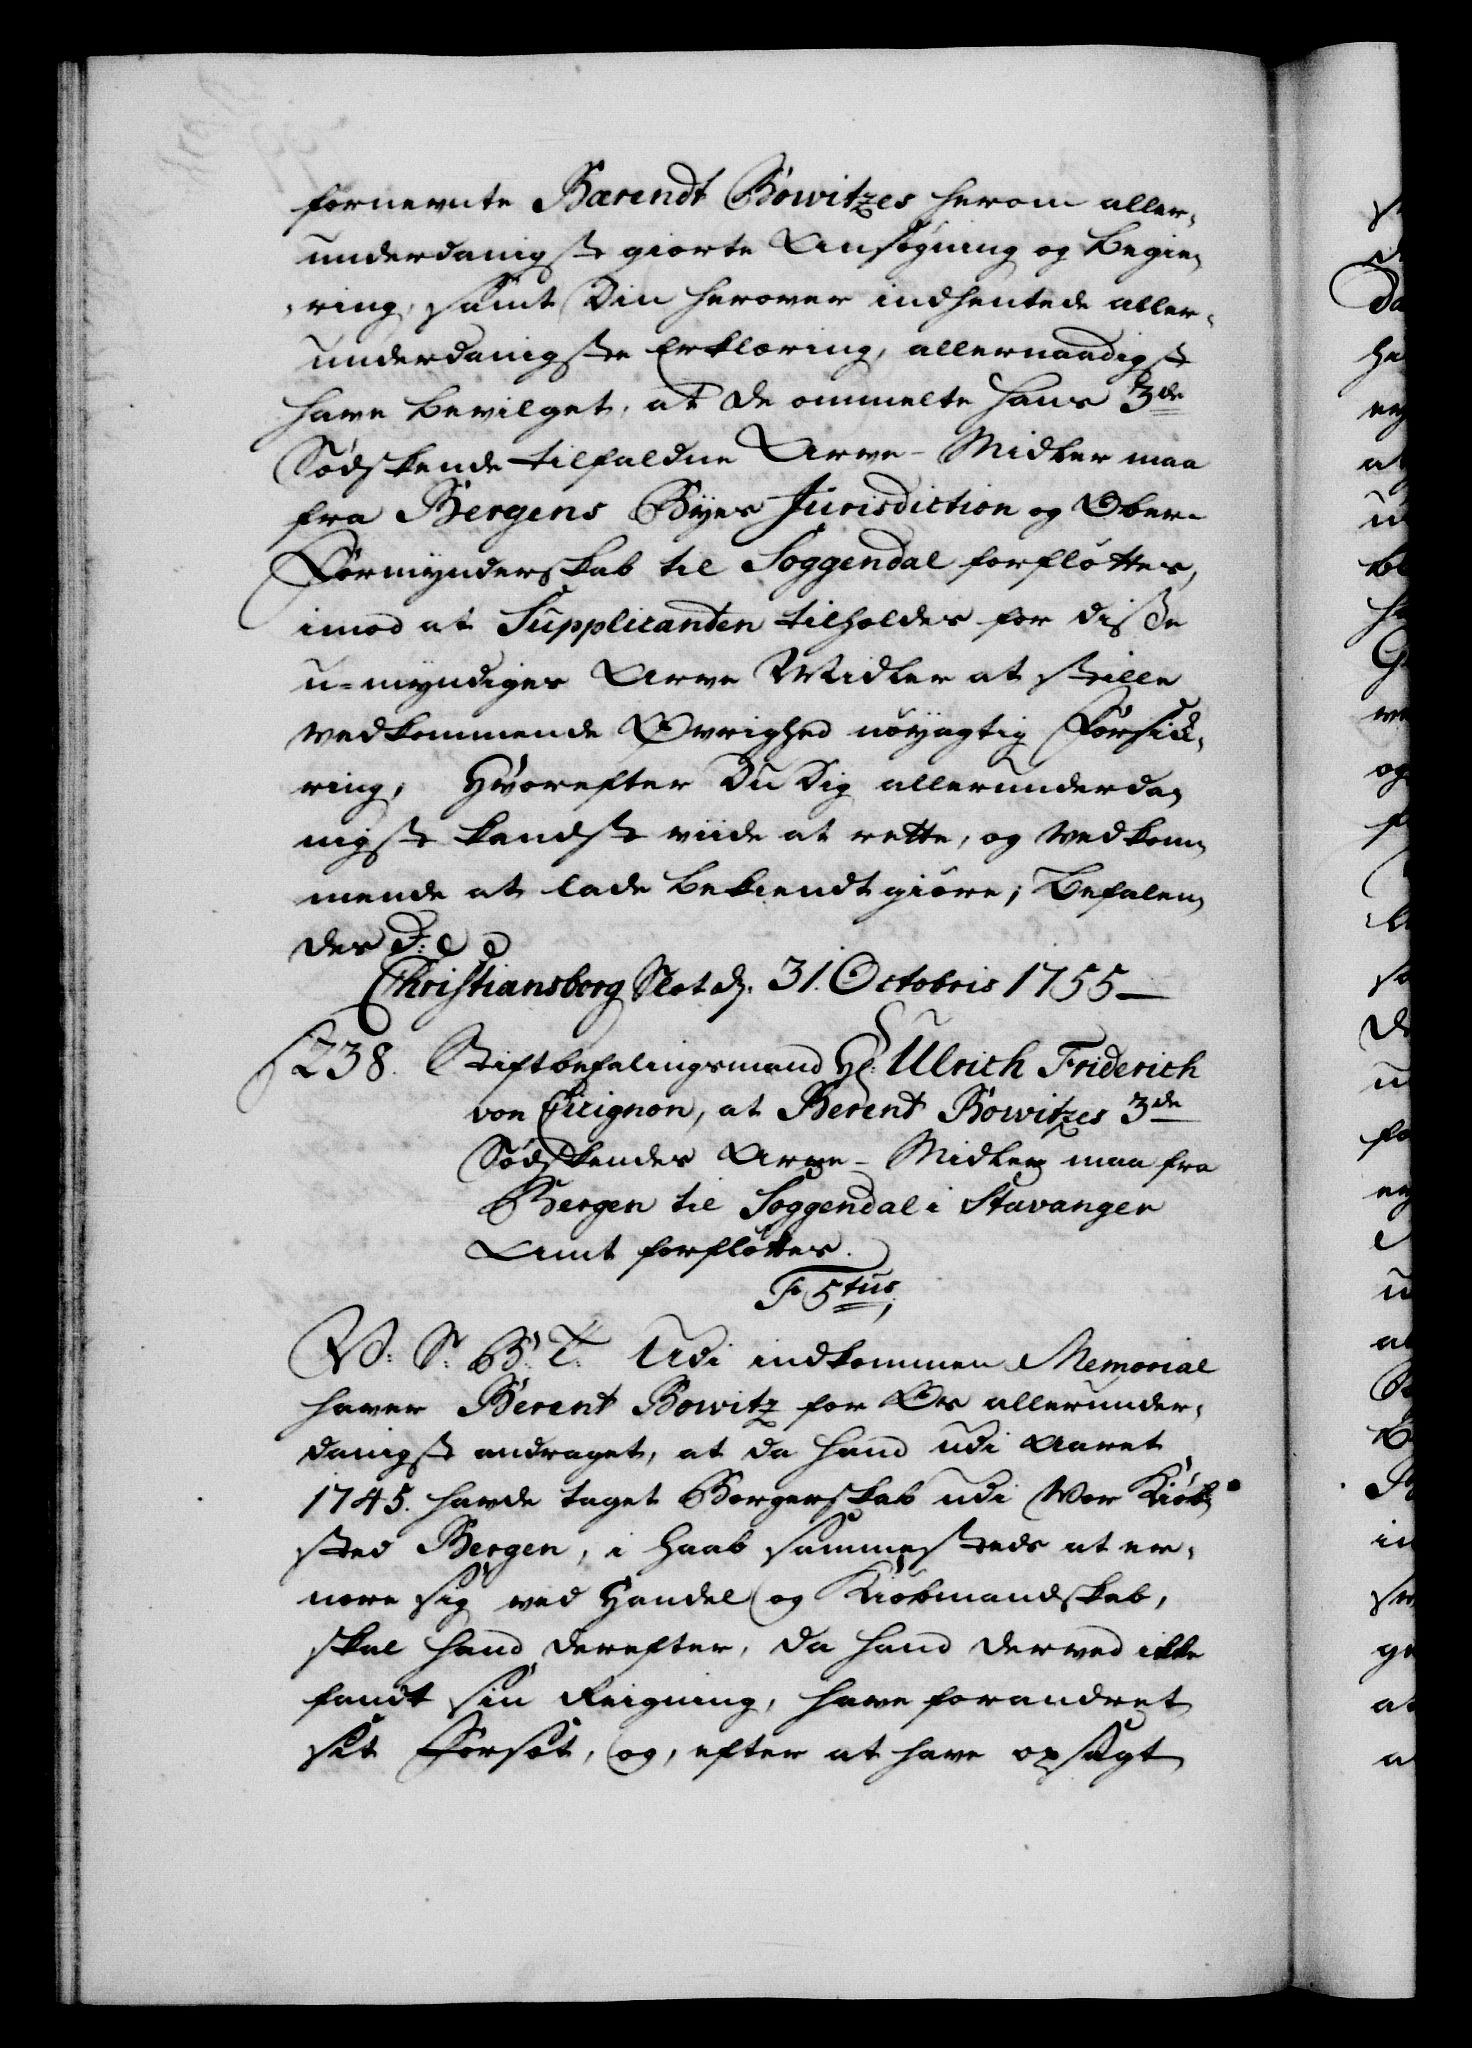 fornevnte Bærendt Bowitzes herom aller-
underdanigste giorte Ansøgning og Begie-
ring, samt Din herover indhentede aller-
underdanigste Erklæring, allernaadigst
have bevilget, at de ommelte hans 3de
Södskende tilfaldne Arve-Midler maa
fra Bergens Byes Jurisdiction og Ober-
Formynderskab til Soggendal forflöttes,
imod at Supplicanten tilholdes for disse
u-myndiges Arve Midler at stille
vedkommende Øvrighed nöyagtig Forsik-
ring, Hvorefter Du Dig allerunderda-
nigst kandst viide at rette, og Vedkom-
mende at lade bekiendtgiöre; Befalen-
des D:
Christiansborg Slot d. 31. Octobris 1755
238. Stiftbefalingsmand Hr: Ulrich Friderich
von Cicignon, at Berent Bowitzes 3de
Södskendes Arve-Midler maa fra
Bergen til Soggendal i Stavanger
Amt forflöttes.
F 5tus
V: S: B: T: Udi indkommen Memorial
haver Berent Bowitz for Os allerunder-
danigst andraget, at da hand udi Aaret
1745. havde taget Borgerskab udi Vor Kiöb-
sted Bergen, i Haab sammesteds at er-
nære sig ved Handel og Kiöbmandskab,
skal hand derefter, da hand derved ikke
fandt sin Reigning, have forandret
sit Forsæt, og, efter at have opsagt